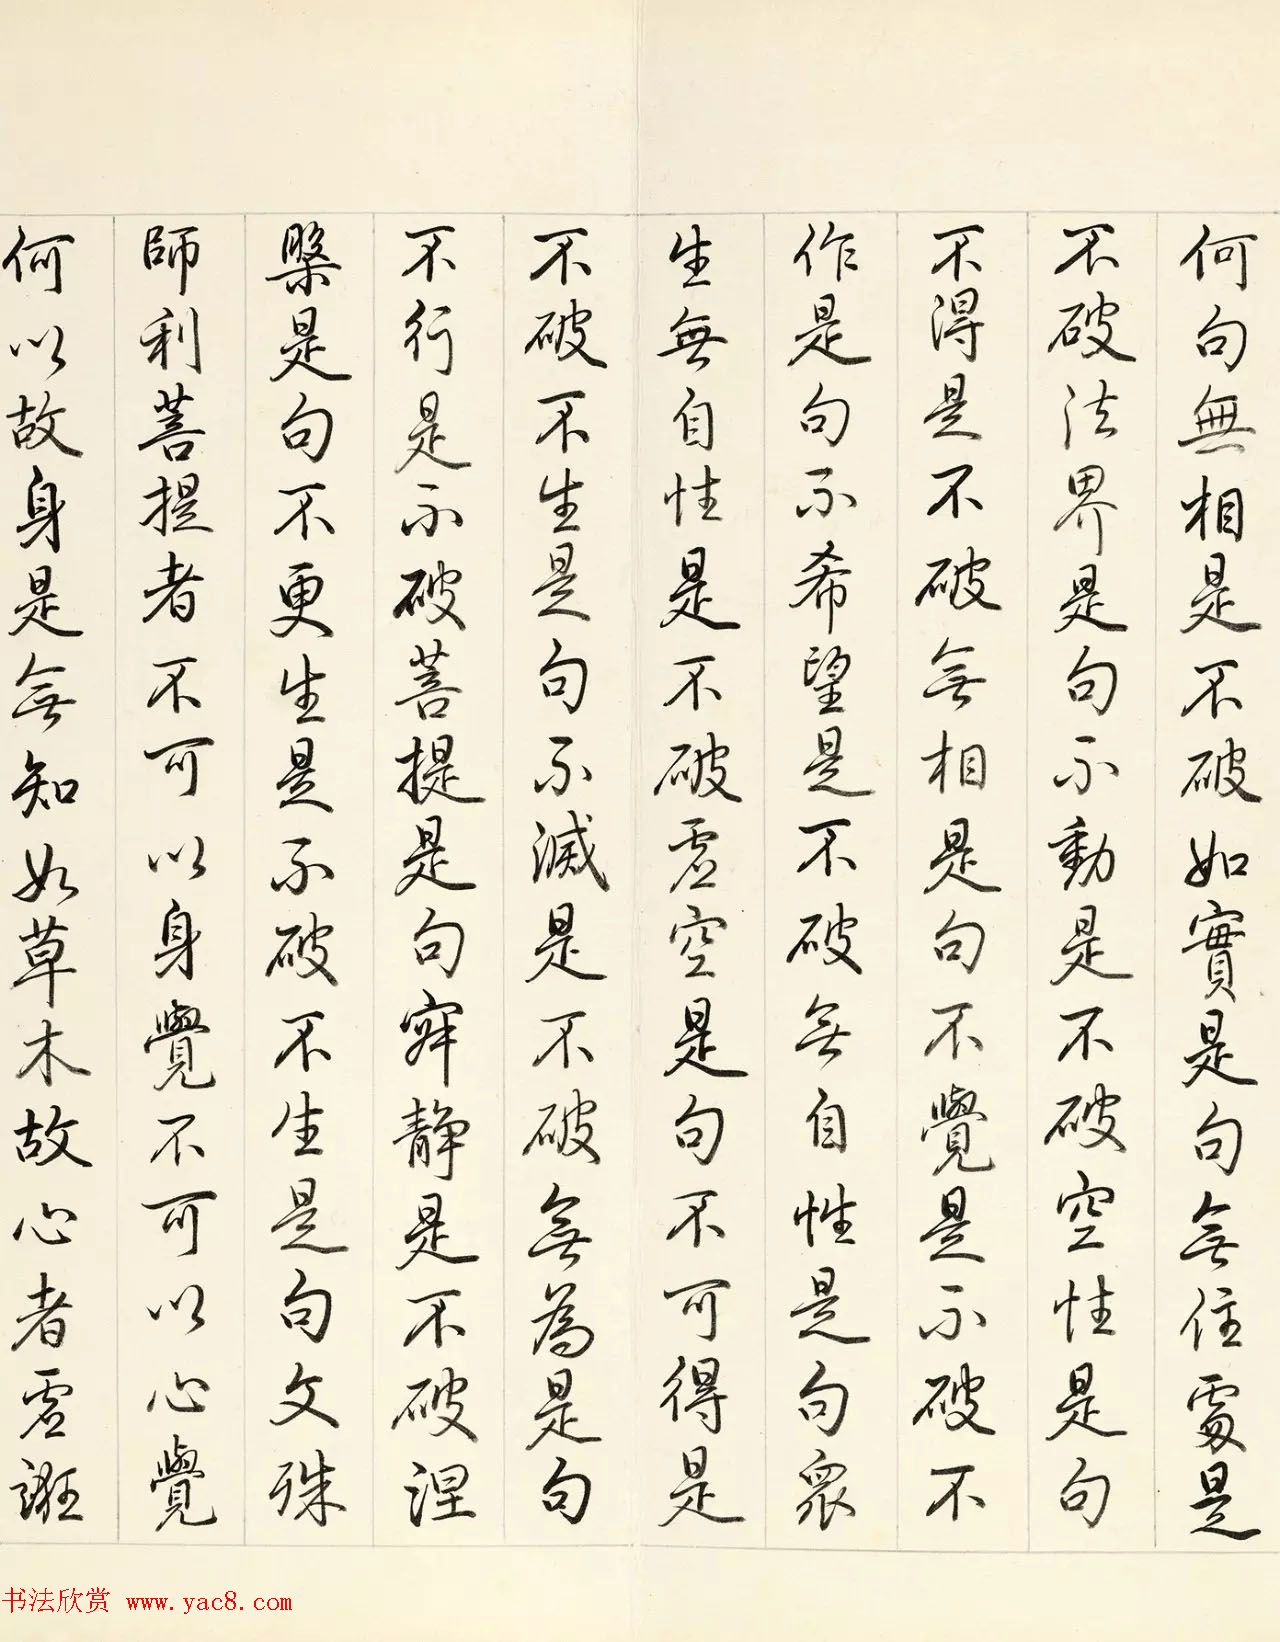 何句無相是不破如實是句無住處是
不破法界是句不動是不破空性是句
不得是不破無相是句不覺是不破不
作是句不希望是不破無自性是句眾
生無自性是不破虛空是句不可得是
不破不生是句不滅是不破無為是句
不行是不破菩提是句寂靜是不破涅
槃是句不更生是不破不生是句文殊
師利菩提者不可以身覺不可以心覺
何以故身是無知如草木故心者虛誑
书法欣赏 www.yac8.com